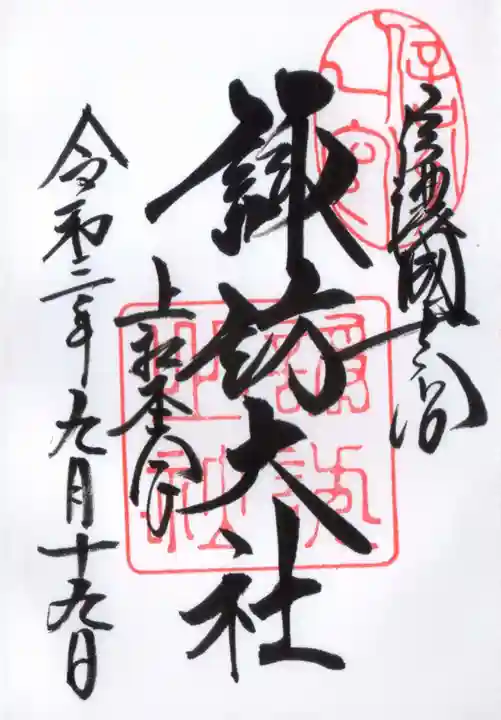 信濃國一宮
諏訪大社
上社本宮
令和二年九月十九日